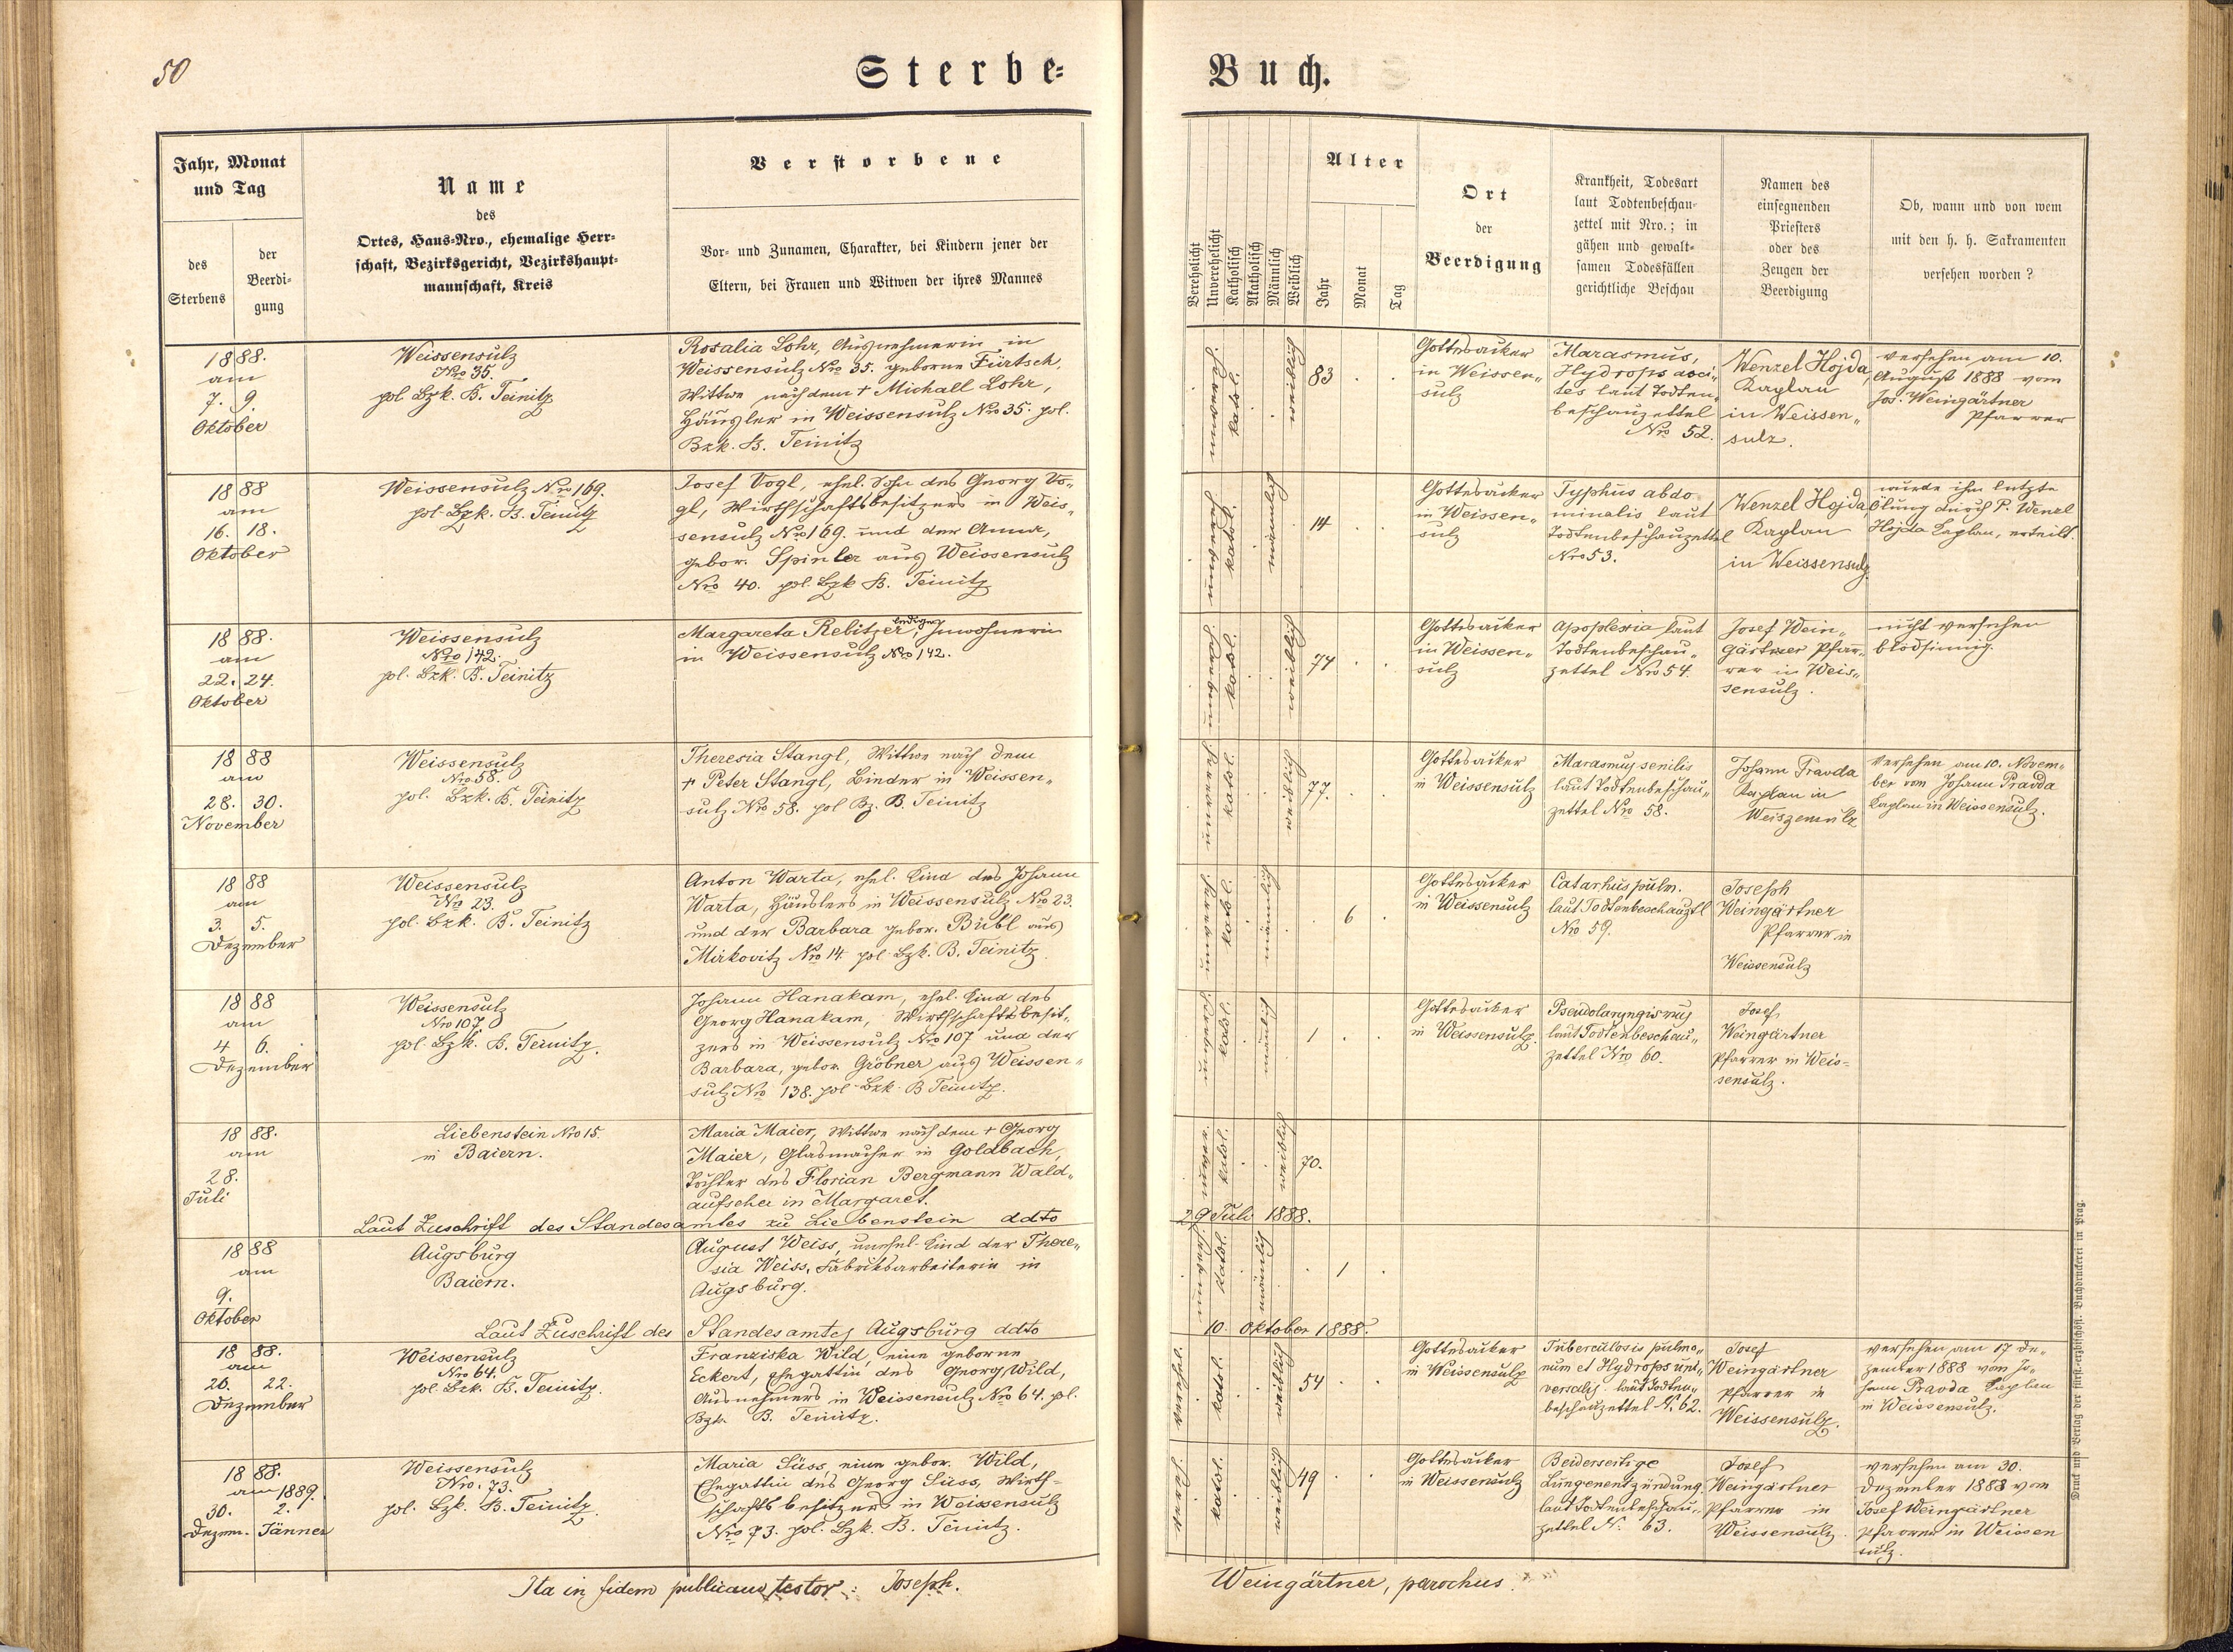 50
Sterbe=
Buch.
Jahr, Monat
und Tag
des
Sterbens
der
Beerdi=
gung
Name
des
Ortes, Haus=Nro., ehemalige Herr=
schaft, Bezirksgericht, Bezirkshaupt=
mannschaft, Kreis
Verstorbene
Vor= und Zunamen, Charakter, bei Kindern jener der
Eltern, bei Frauen und Witwen der ihres Mannes
Verehelicht
Unverehelicht
Katholisch
Akatholisch
Männlich
Weiblich
Alter
Jahr
Monat
Tag
Ort
der
Beerdigung
Krankheit, Todesart
laut Todtenbeschau=
zettel mit Nro.; in
gähen und gewalt=
samen Todesfällen
gerichtliche Beschau
Namen des
einsegnenden
Priesters
oder des
Zeugen der
Beerdigung
Ob, wann und von wem
mit den h. h. Sakramenten
versehen worden?
1888.
am
7. 9.
Oktober
Weissensulz
Nro 35.
pol. Bzk. B. Teinitz
Rosalia Lohr, Ausnehmerin in
Weissensulz Nro 35. geborne Fürtsch,
Wittwe nach dem † Michall Lohr,
Häusler in Weissensulz Nro 35. pol.
Bzk. B. Teinitz
katol.
weiblich
83
Gottesacker
in Weissen„
sulz
Marasmus,
Hydrops asci„
tes laut Todten„
beschauzettel
Nro 52.
Wenzel Hojda,
Kaplan
in Weissen„
sulz.
versehen am 10.
August 1888 vom
Jos. Weingärtner
Pfarrer
1888
am
16. 18.
Oktober
Weissensulz Nro 169.
pol. Bzk. B. Teinitz
Josef Vogl, ehel. Sohn des Georg Vo„
gl, Wirthschaftsbesitzers in Weis„
sensulz Nro 169. und der Anna,
gebor. Spinler aus Weissensulz
Nro 40. pol. Bzk B. Teinitz
katol.
männlich
14
Gottesacker
in Weissen„
sulz
Typhus abdo
minalis laut
Todtenbeschauzettel
Nro 53.
Wenzel Hojda,
Kaplan
in Weissensulz.
wurde ihm letzte
Ölung durch P. Wenzl
Hojda Kaplan, erteilt.
1888.
am
22. 24.
Oktober
Weissensulz
Nro 142.
pol. Bzk. B. Teinitz
Margareta Rebitzer, ledige Inwohnerin
in Weissensulz Nro 142.
katol.
weiblich
74
Gottesacker
in Weissen„
sulz
Apoplexia laut
Todtenbeschau„
zettel Nro 54.
Josef Wein„
gärtner Pfar„
rer in Weis„
sensulz.
nicht versehen
blödsinnig.
1888
am
28. 30.
November
Weissensulz
Nro 58.
pol. Bzk. B. Teinitz
Theresia Stangl, Wittwe nach dem
† Peter Stangl, Binder in Weissen„
sulz Nro 58. pol Bz. B. Teinitz
katol.
weiblich
77.
Gottesacker
in Weissensulz
Marasmus senilis
laut Todtenbeschau„
zettel Nro 58.
Johann Pravda
Kaplan in
Weiszensulz
Versehen am 10. Novem„
ber von Johann Pravda
Kaplan in Weissensulz.
1888
am
3. 5.
Dezember
Weissensulz
Nro 23.
pol. Bzk. B. Teinitz
Anton Warta, ehel. Kind des Johann
Warta, Häuslers in Weissensulz Nro 23.
und der Barbara gebor. Bübl aus
Mirkovitz Nro 14. pol. Bzk. B. Teinitz.
katol.
männlich
6
Gottesacker
in Weissensulz
Catarhus pulm.
laut Todtenbeschauztl
Nro 59.
Joseph
Weingärtner
Pfarrer in
Weissensulz
1888
am
4 6.
Dezember
Weissensulz
Nro 107
pol. Bzk. B. Teinitz.
Johann Hanakam, ehel. Kind des
Georg Hanakam, Wirthschaftsbesit„
zers in Weissensulz Nro 107 und der
Barbara, gebor. Gröbner aus Weissen„
sulz Nro 138. pol. Bzk. B Teinitz.
katol.
mänlich
1
Gottesacker
in Weissensulz.
Pseudolaryngismus
laut Todtenbeschau„
zettel Nro 60.
Josef
Weingärtner
Pfarrer in Weis=
sensulz.
1888.
am
28.
Juli
Liebenstein Nro 15.
in Baiern.
Maria Maier, Wittwe nach dem † Georg
Maier, Glasmacher in Goldbach,
Tochter des Florian Bergmann Wald„
aufseher in Margaret.
katol.
weiblich
70.
Laut Zuschrift des Standesamtes zu Liebenstein ddto
29 Juli 1888.
1888
am
9.
Oktober
Augsburg
Baiern.
August Weiss, unehel. Kind der There„
sia Weiss, Fabriksarbeiterin in
Augsburg.
katol.
mänlich
1
Laut Zuschrift des Standesamtes Augsburg ddto
10. Oktober 1888.
1888.
am
20. 22.
Dezember
Weissensulz
Nro 64.
pol. Bzk. B. Teinitz.
Franziska Wild, eine geborne
Eckert, Ehegattin des Georg Wild,
Ausnehmers in Weissensulz Nro 64. pol.
Bzk. B. Teinitz.
verehel.
katol.
weiblich
54
Gottesacker
in Weissensulz
Tuberculosis pulmo„
num et Hydrops uni„
versalis laut Todten„
beschauzettel N. 62.
Josef
Weingärtner
Pfarrer in
Weissensulz.
versehen am 17 De„
zember 1888 vom Jo„
hann Pravda Kaplan
in Weissensulz.
1888.
am 1889.
30. 2.
Dezem. Jänner
Weissensulz
Nro. 73.
pol. Bzk. B. Teinitz.
Maria Süss eine gebor. Wild,
Ehegattin des Georg Süss, Wirth=
schaftsbesitzers in Weissensulz
Nro 73. pol. Bzk. B. Teinitz.
verehel.
katol.
weiblich
49
Gottesacker
in Weissensulz
Beiderseitige
Lungenentzündung
laut Todtenbeschau„
zettel N. 63.
Josef
Weingärtner
Pfarrer in
Weissensulz.
versehen am 30.
Dezember 1888 vom
Josef Weingärtner
Pfarrer in Weissen
sulz.
Ita in fidem publicam testor: Joseph. Weingärtner, parochus.
Druck und Verlag der fürst-erzbischöfl. Buchdruckerei in Prag.